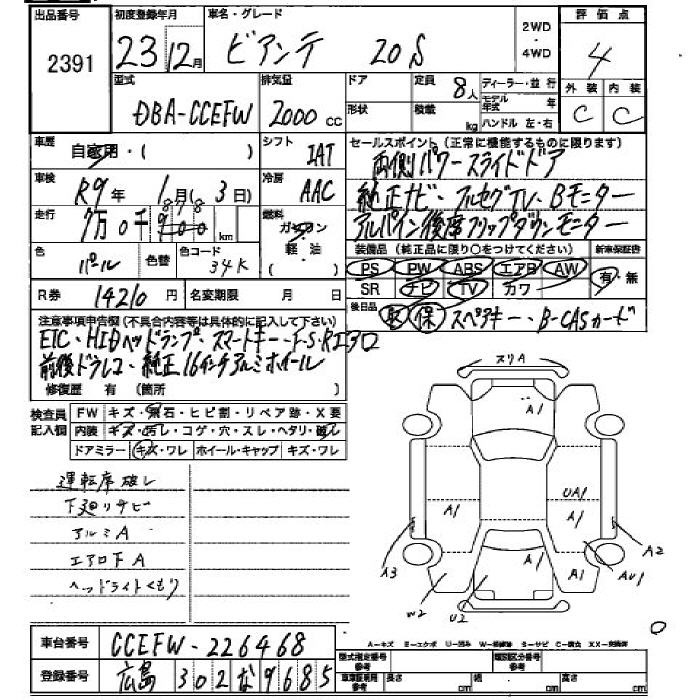 出品番号 初度登録年月 車名・グレード 2WD・4WD 評価点
2391 23 12月 ビアンテ 20S 4
型式 排気量 ドア 定員 8人 ディーラー・並行 外装 内装
DBA-CCEFW 2000cc 形状 積載 kg モデル年式 年 C C
ハンドル 左・右
車歴 自家用・( ) シフト IAT セールスポイント(正常に機能するものに限ります)
両側パワースライドドア
車検 R9年 1月( 3日) 冷房 AAC 純正ナビ・フルセグTV・Bモニター
走行 7万0千 km 燃料 ガソリン・軽油 ( ) アルパイン後席フリップダウンモニター
色 パール 色替 色コード 34K 装備品(純正品に限り○をつけてください) 新車保証書
PS PW ABS エアB AW 有・無
SR ナビ TV カワ
R券 14210円 名変期限 月 日 後日品 取 保 スペアキー・B-CASカード
注意事項申告欄(不具合内容等は具体的に記入して下さい)
ETC・HIDヘッドランプ・スマートキー・F・S・Rエアロ
前後ドラレコ・純正16インチアルミホイール
修復歴 有 (箇所 )
検査員記入欄 FW キズ・飛石・ヒビ割・リペア跡・X要
内装 キズ・汚レ・コゲ・穴・スレ・ヘタリ・破レ
ドアミラー キズ・ワレ ホイール・キャップ キズ・ワレ
スリA
A1
運転席破レ
下廻りサビ
アルミA
エアロ下A
ヘッドライトくもり
UA1
A1 A1
A3 A1 A1 AU1 A2
W2 U2
A-キズ E-エコボ U-凹み W-補修跡 T-サビ C-腐食 XX-交換済
車台番号 CCEFW-226468
型式指定番号 参考 類別区分番号 参考
登録番号 広島 302 な 9685
車庫証明用参考 長さ cm 幅 cm 高さ cm